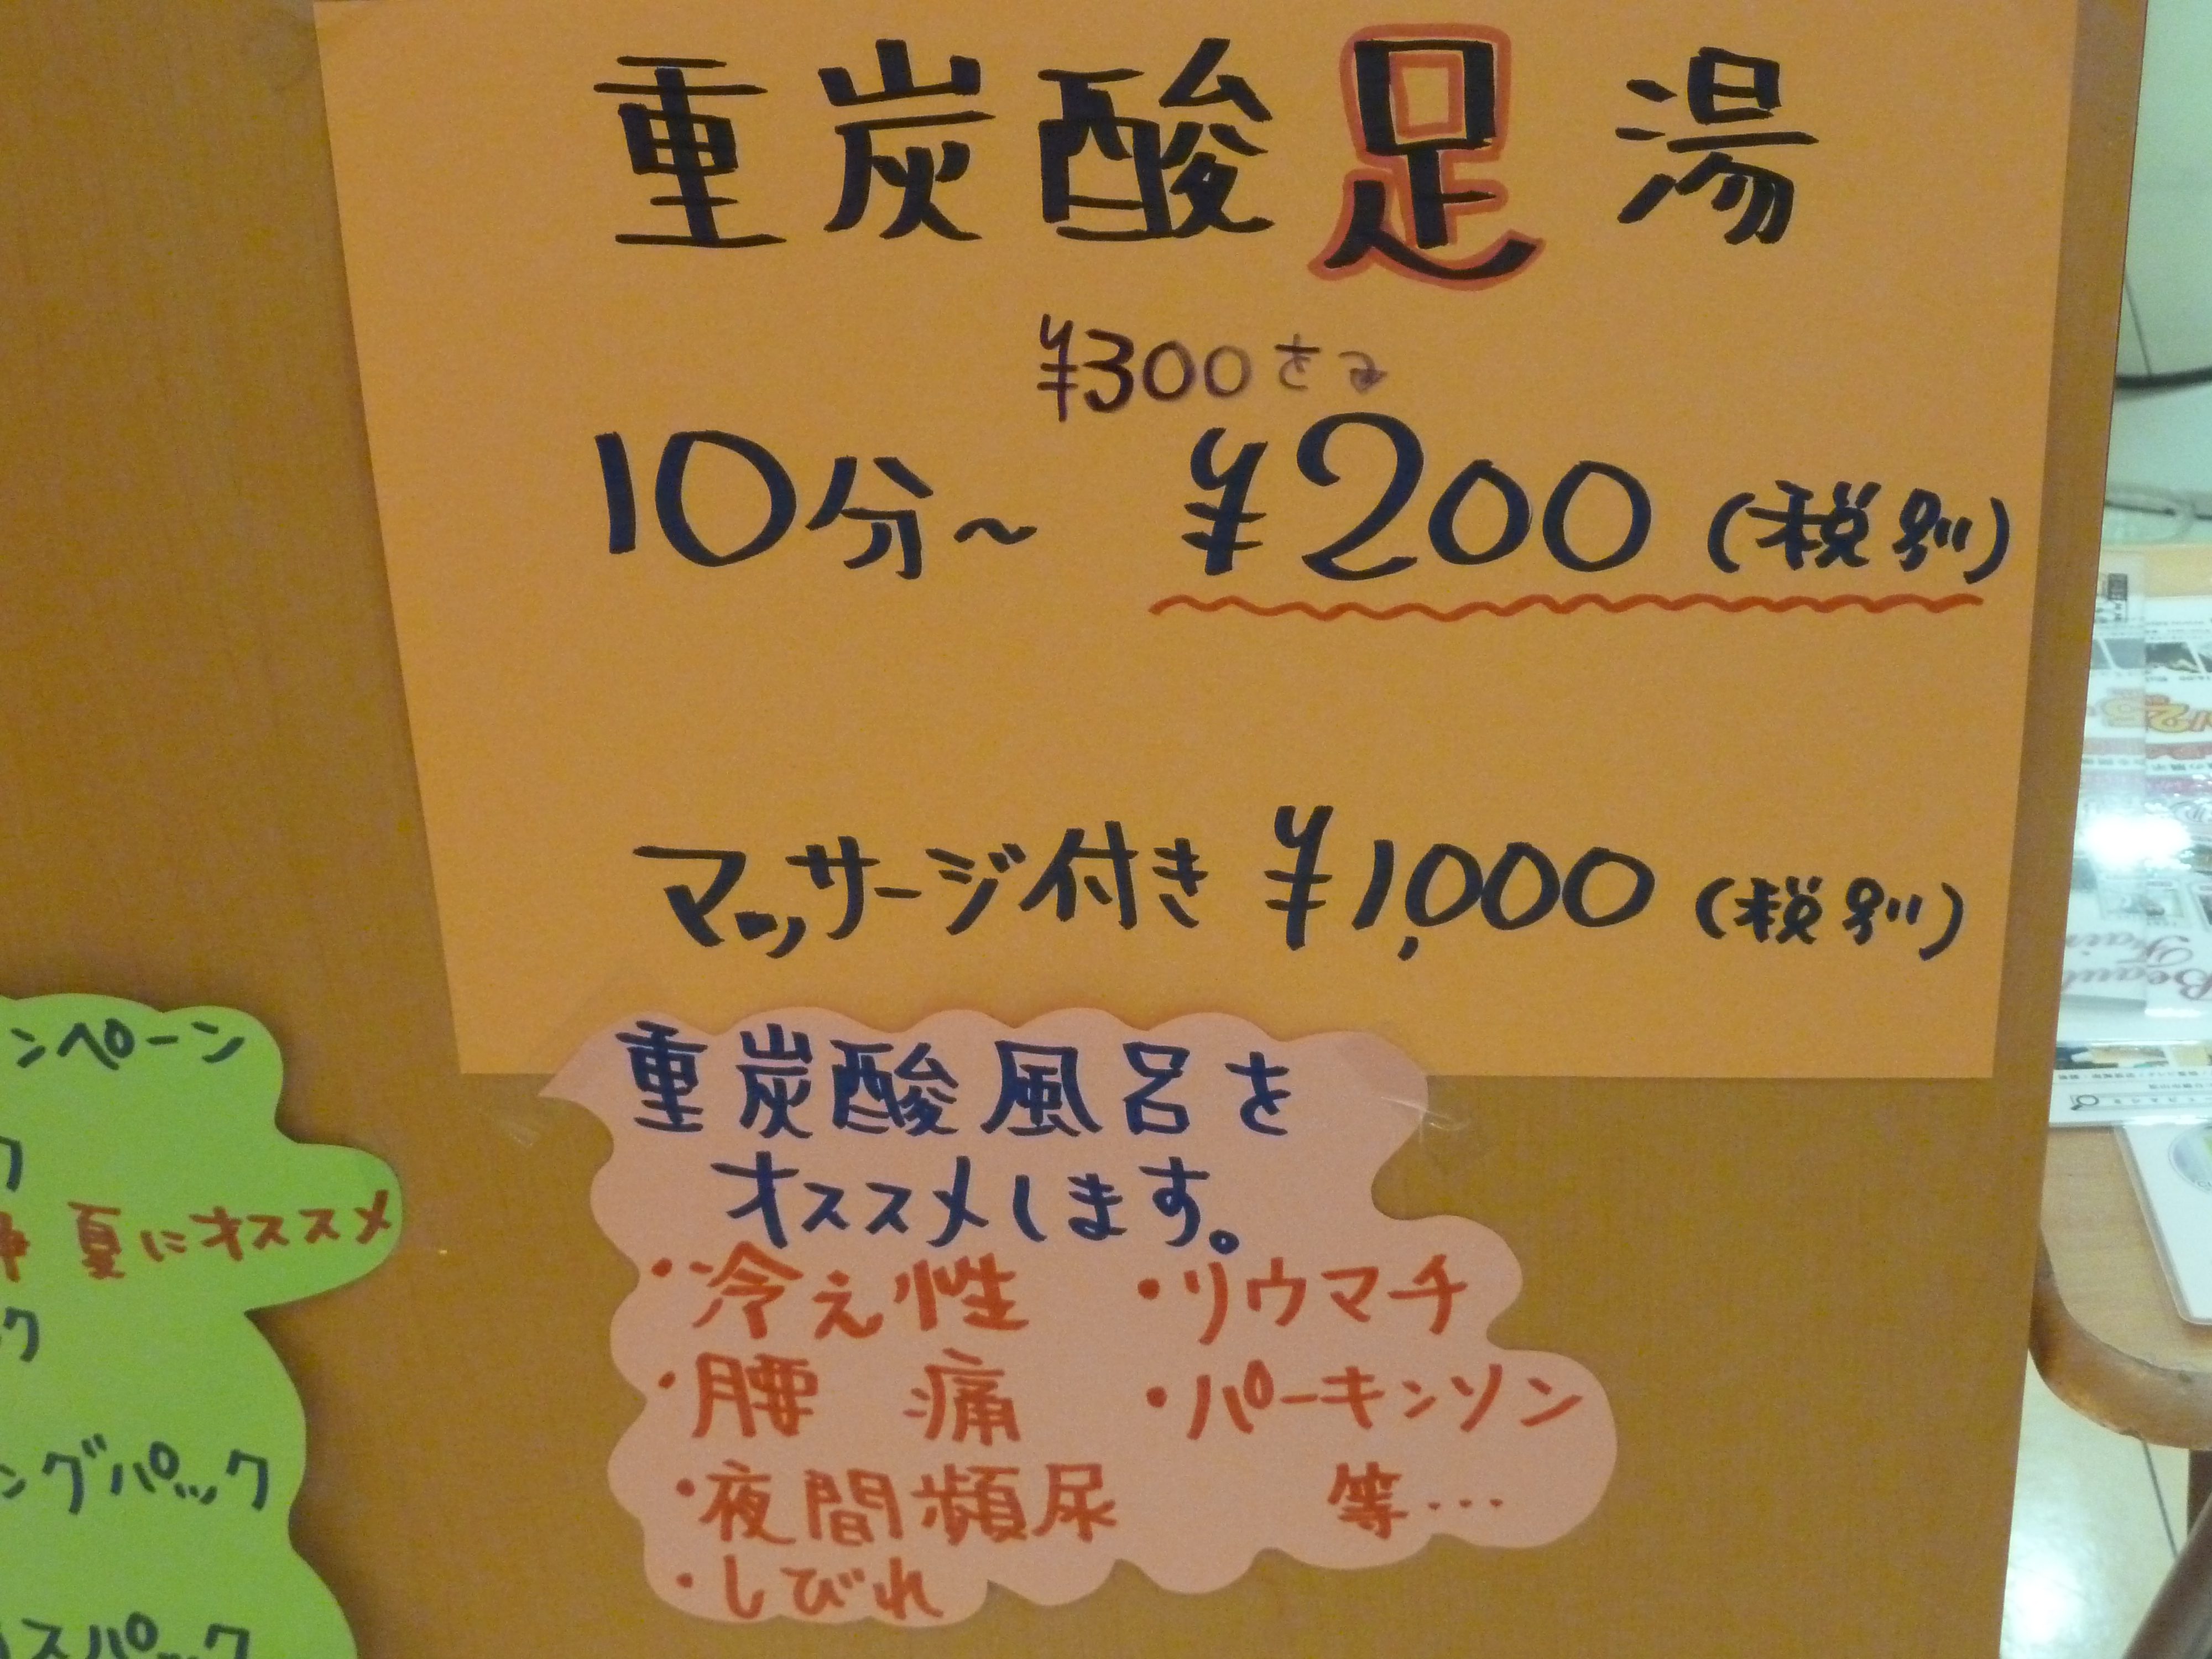 重炭酸足湯
¥300を
10分～ ¥200(税別)
マッサージ付き ¥1,000(税別)
重炭酸風呂を
オススメします。
・冷え性 ・リウマチ
・腰痛 ・パーキンソン
・夜間頻尿 等…
・しびれ
ンペーン
ク
夏にオススメ
ク
ングパック
スパック
Beaut
Hair